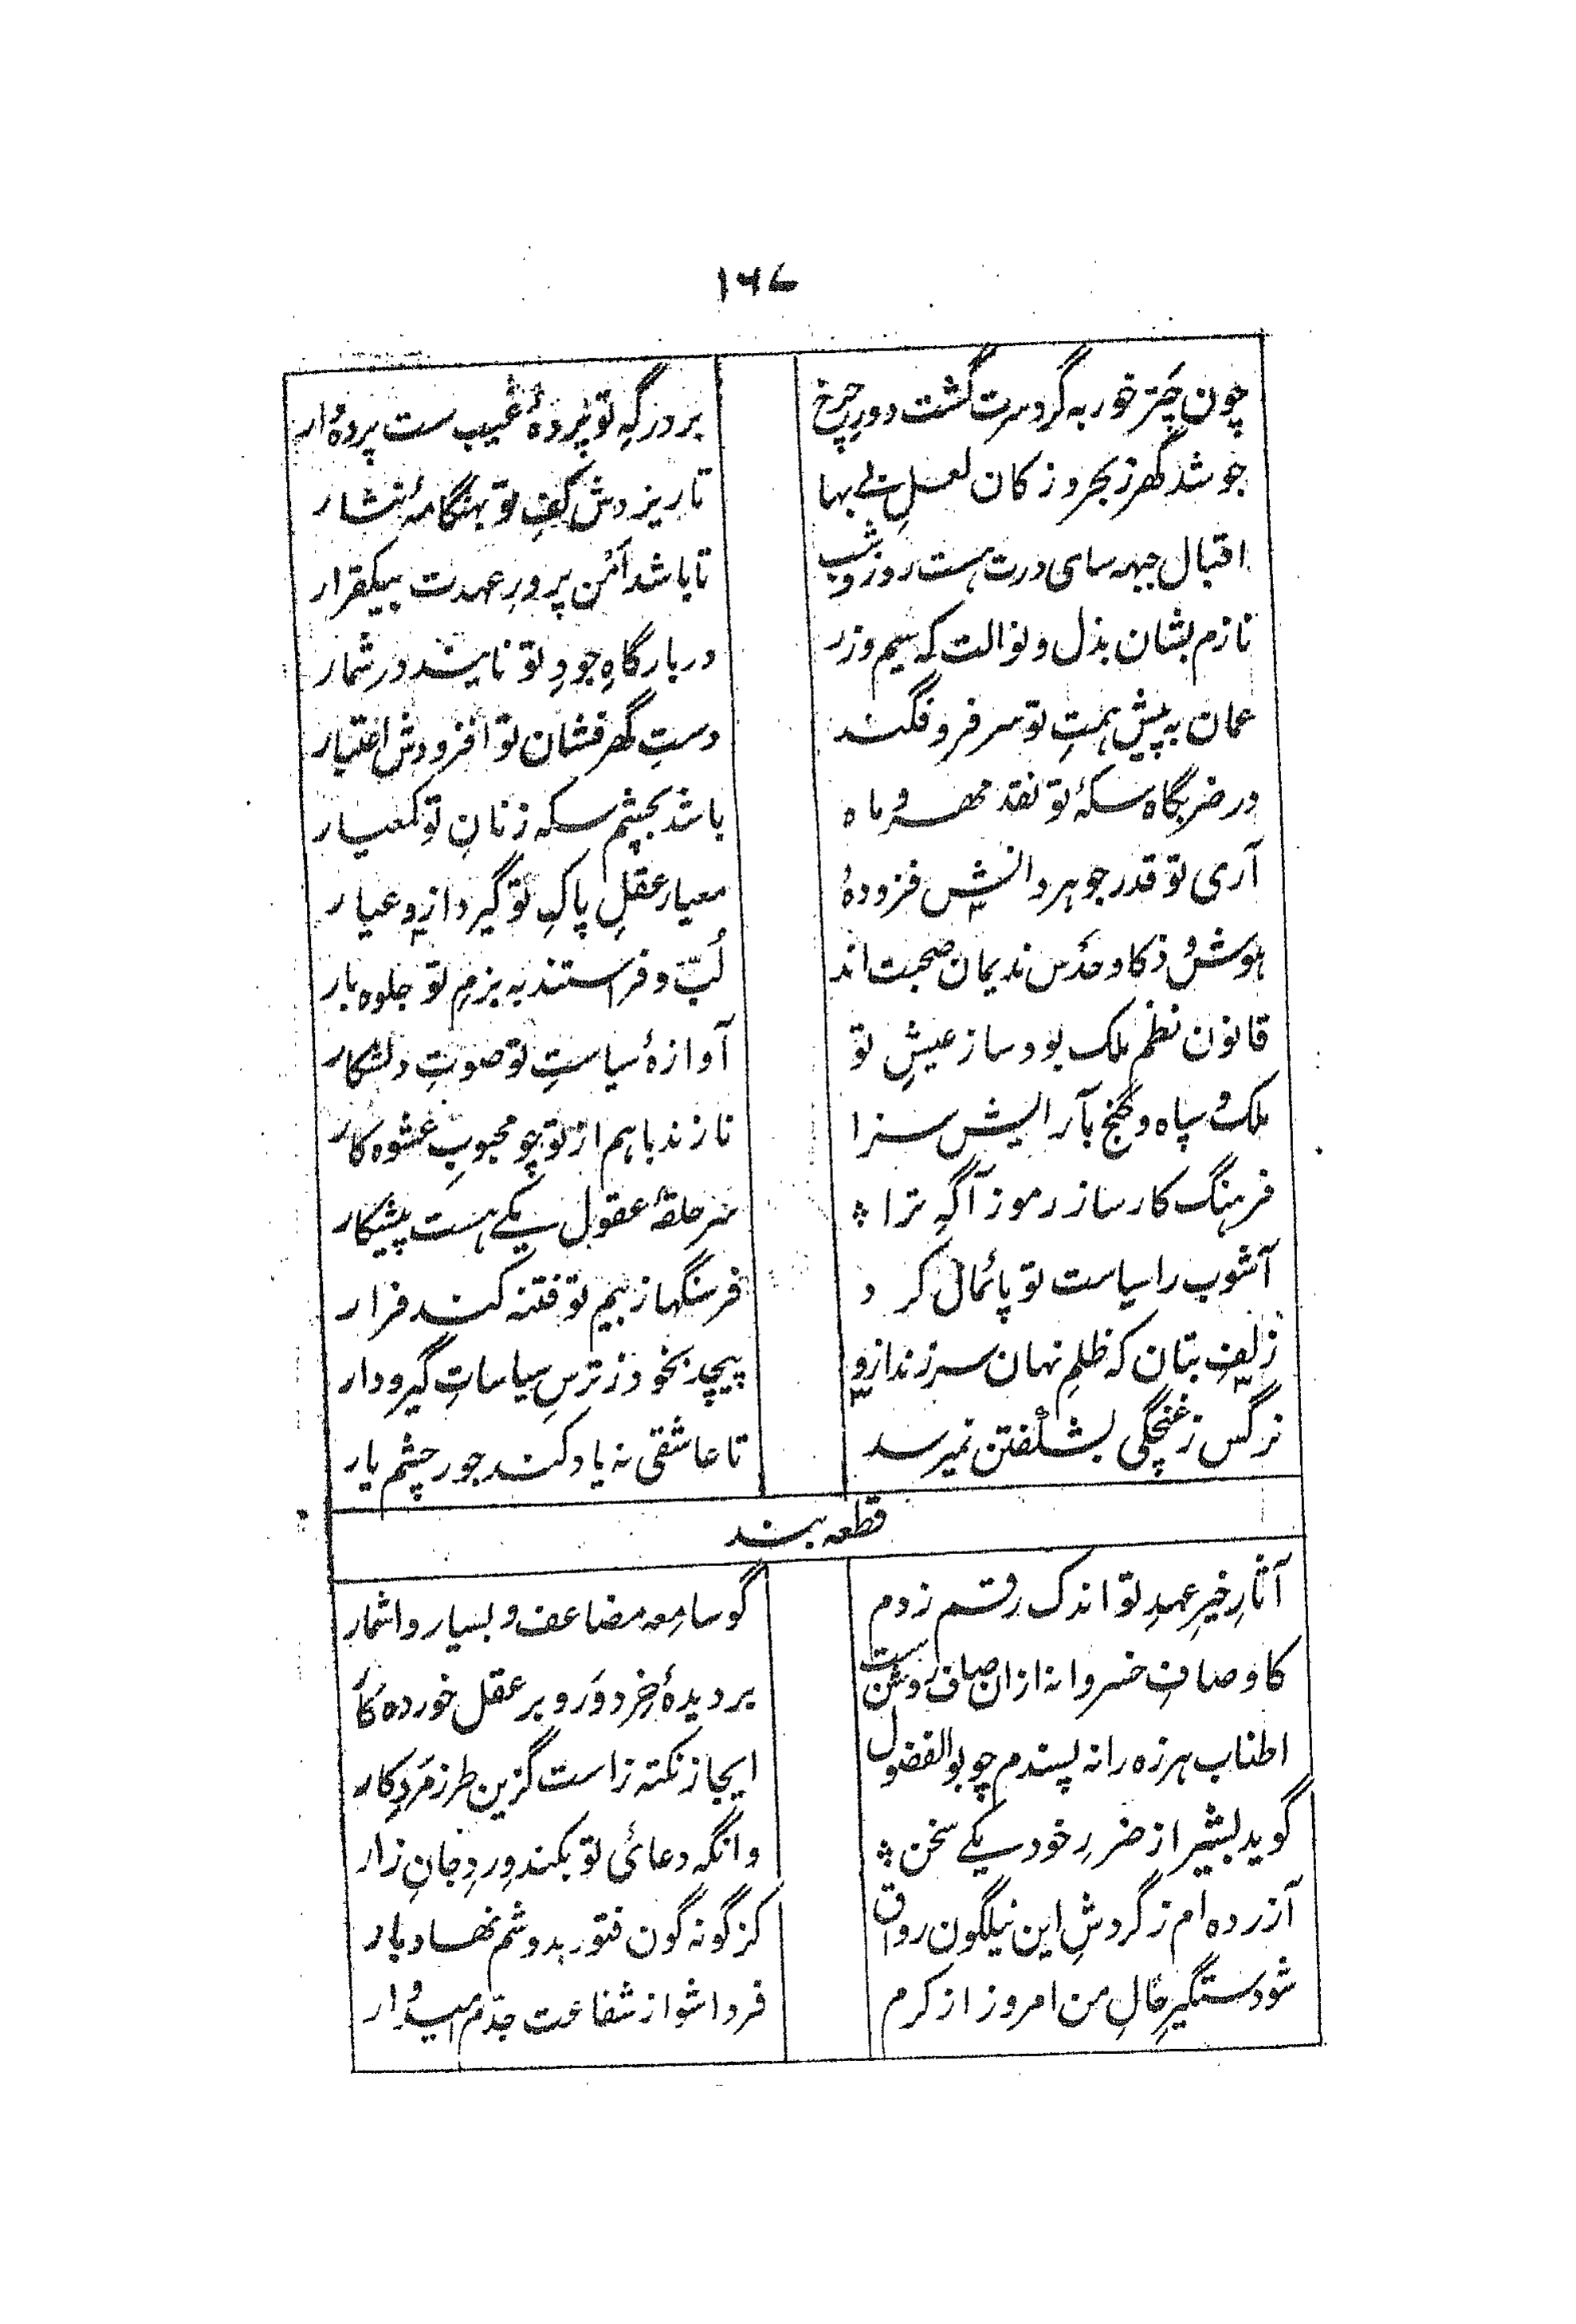 ۱۶۷
چون چَترِ خور به گردِ سرت گشت دورِ چرخ
بر درگهِ تو پردهٔ غیب ست پرده دار
جوشد گهر ز بحر و ز کان لعلِ بی بها
تا ریزدش کفِ تو بهنگامهٔ نثار
اقبال جبهه سای درت هست روز و شب
تا باشد اَمْن پرورِ عهدت بیکقرار
نازم بشان بذل و نوالت که سیم و زر
در بارگاهِ جودِ تو نایند در شمار
عمان به پیش همتِ تو سر فرو فگند
دستِ گهر فشان تو افزودش اعتبار
در ضربگاه سکهٔ تو نقد مهر و ماه
باشد بچشم سکه زنانِ تو کمعیار
آری تو قدر جوهر دانش فزودهٔ
معیار عقلِ پاکِ تو گیرد ازو عیار
هوش و ذکا و حَدْس ندیمان صحبت اند
لُبّ و فراستند به بزمِ تو جلوه بار
قانون نظم ملک بود ساز عیشِ تو
آوازهٔ سیاستِ تو صوتِ دلشکار
ملک و سپاه و گنج بآرایش سزا
نازند باهم از تو چو محبوبِ عشوه کار
فرهنگ کارساز رموز آگهِ ترا
سر حلقهٔ عقول یکے هست پیشکار
آشوب را سیاست تو پائمال کرد
فرسنگها ز بیم تو فتنه کند فرار
زلفِ بتان که ظلمِ نهان سر زند ازو
پیچد بخود ز ترسِ سیاساتِ گیرودار
نرگس ز غنچگی بشگفتن نمیرسد
تا عاشقی نه یاد کند جور چشم یار
قطعه بند
آثارِ خیرِ عہدِ تو اندک رقم زدم
گو سامعه مضاعف و بسیار وا شمار
کاوصافِ خسروانه ازان صاف روشن ست
بر دیدهٔ خرد وَر و بر عقل خورده کار
اطناب هرزه را نه پسندم چو بو الفضول
ایجاز نکته زاست گزین طرز مَردِ کار
گوید بشیر از ضررِ خود یکے سخن
وانگه دعائی تو بکند وِردِ جانِ زار
آزرده ام ز گردشِ این نیلگون رواق
کز گونه گون فتور بدوشم نهاد بار
شو دستگیرِ حالِ من امروز از کرم
فردا شو از شفاعت جدّم امیدوار